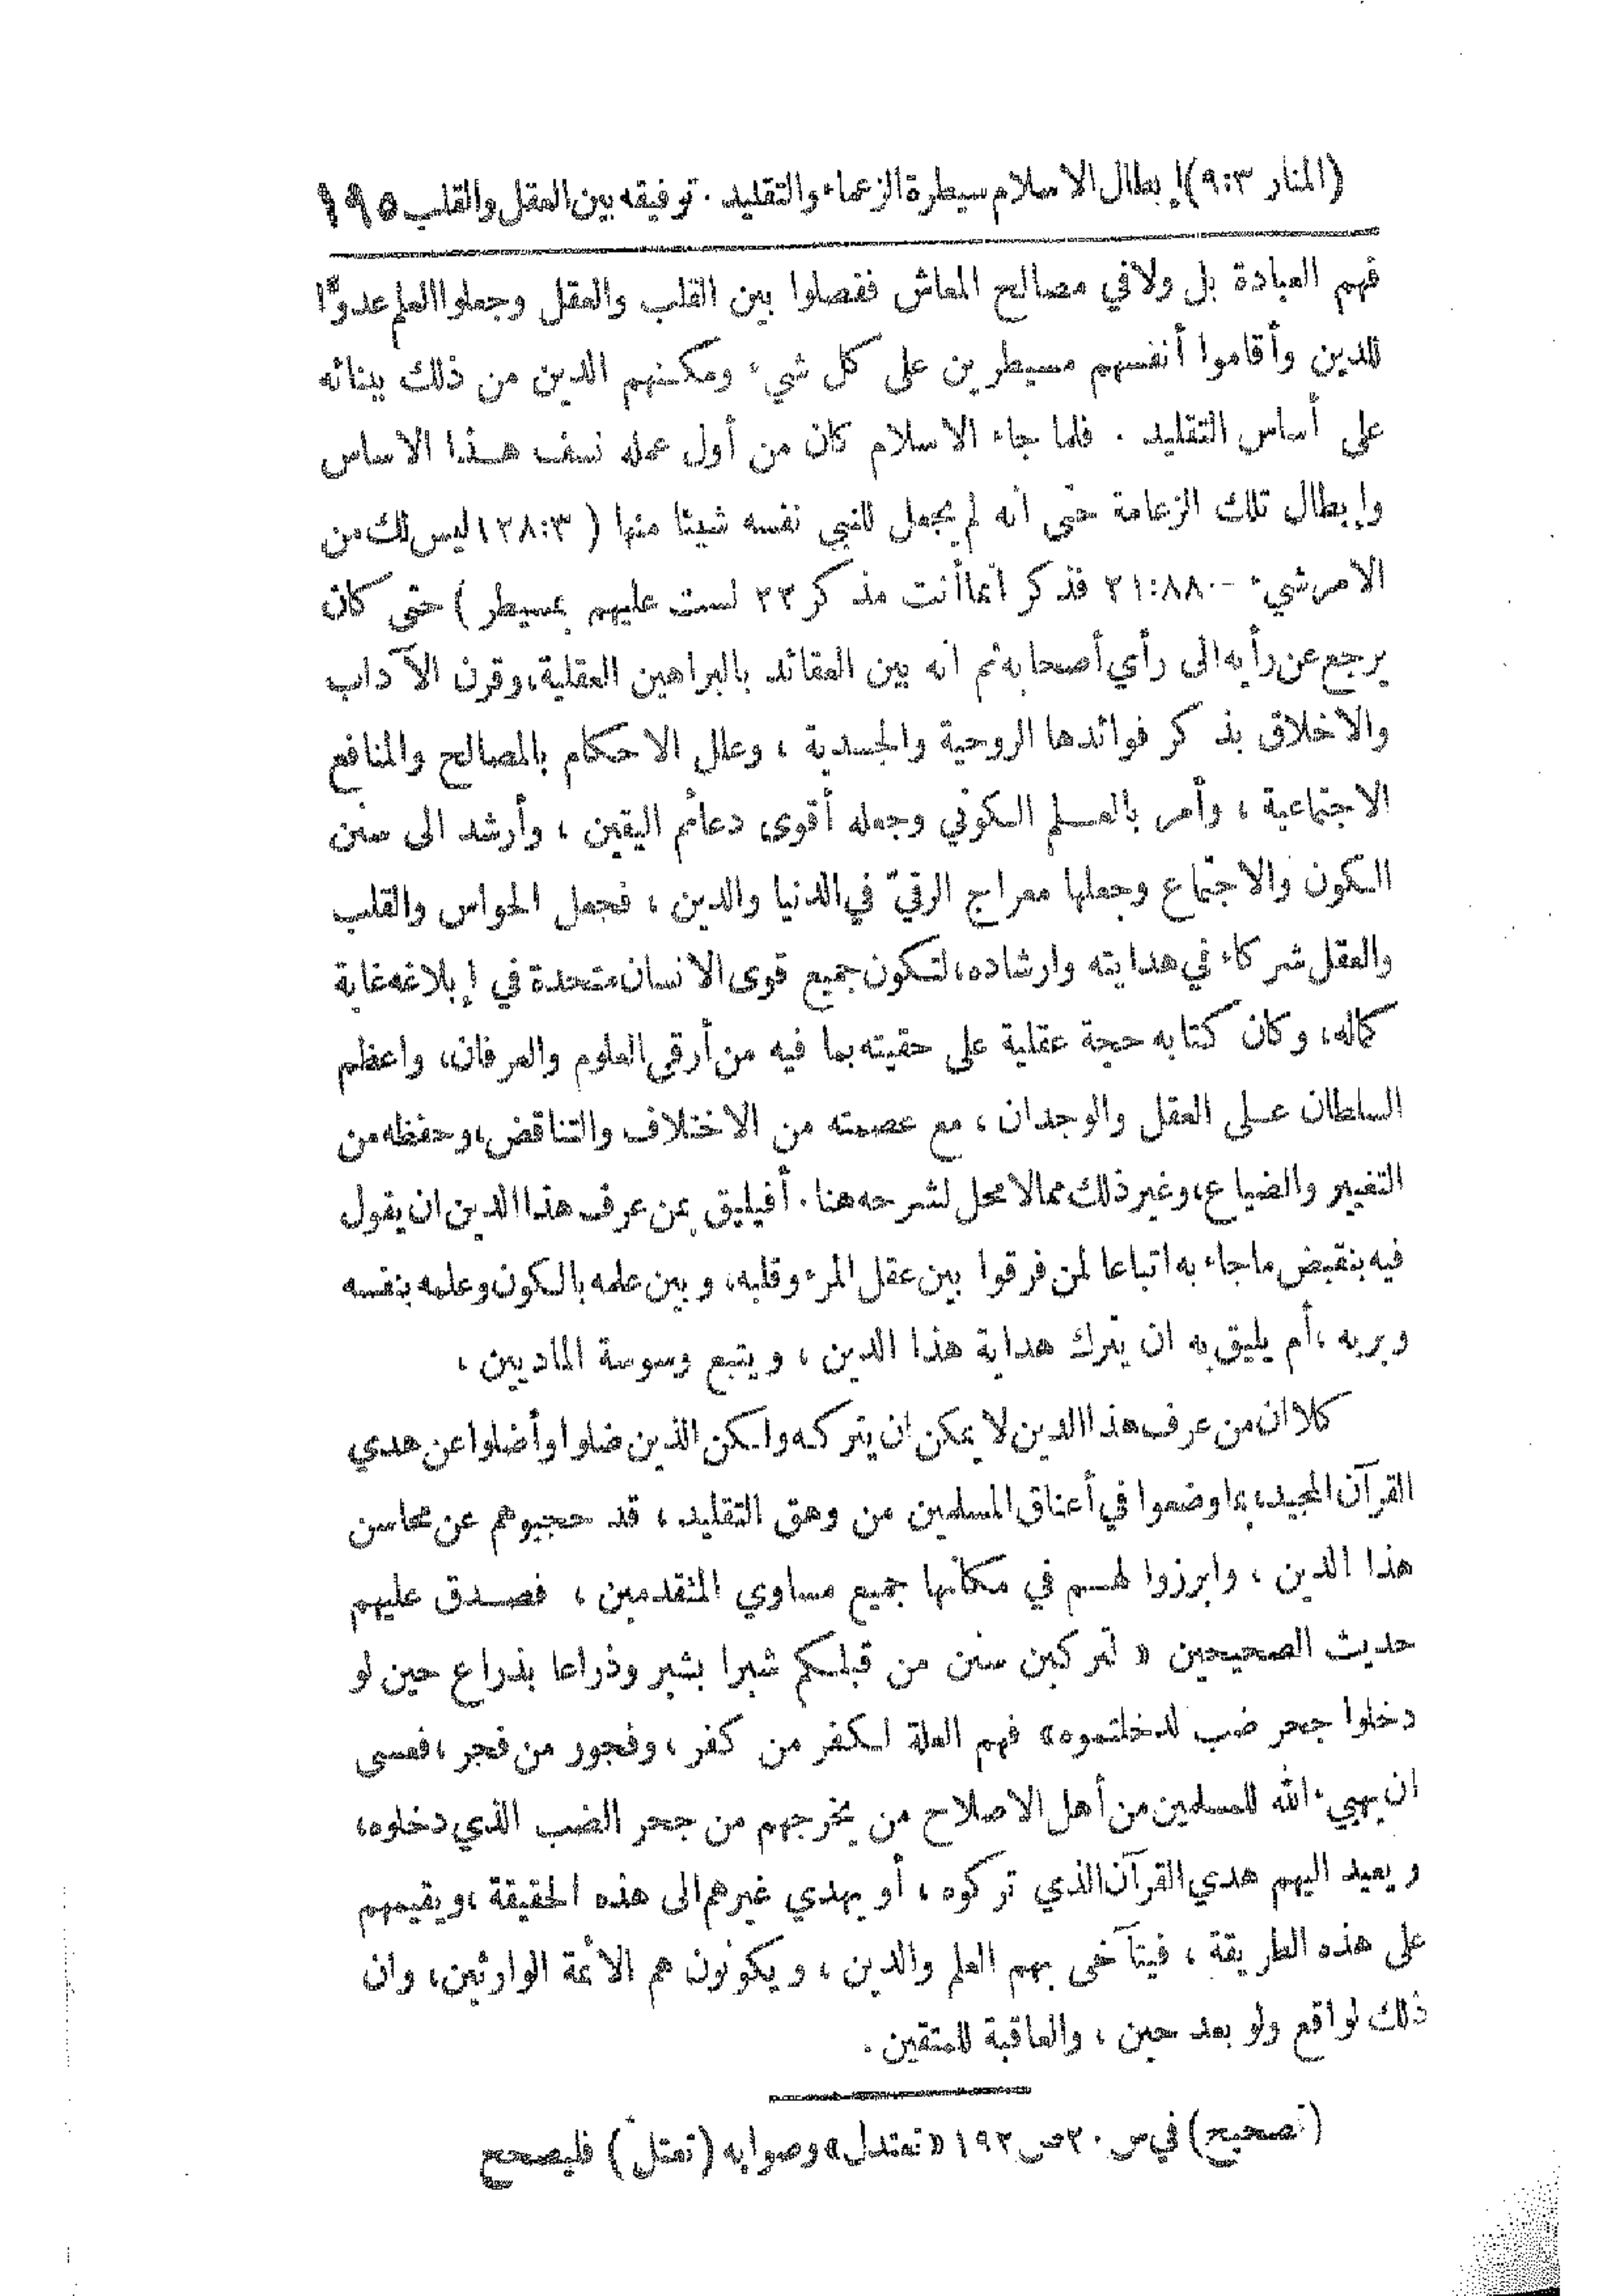 (المنار ٩:٣) إبطال الاسلام سيطرة الزعماء والتقليد . توفيقه بين العقل والقلب ١٩٥
فهم العبادة بل ولا في مصالح المعاش ففصلوا بين القلب والعقل وجعلوا العلم عدوًّا
للدين وأقاموا أنفسهم مسيطرين على كل شيء ومكنهم الدين من ذلك ببنائه
على أساس التقليد . فلما جاء الاسلام كان من أول عمله نسف هذا الاساس
وإبطال تلك الزعامة حتى انه لم يجعل للنبي نفسه شيئا منها ( ١٢٨:٣ ليس لك من
الامر شيء - ٢١:٨٨ فذكر انما أنت مذكر ٢٢ لست عليهم بمسيطر ) حتى كان
يرجع عن رأيه الى رأي أصحابه ثم انه بين العقائد بالبراهين العقلية، وقرن الآداب
والاخلاق بذكر فوائدها الروحية والجسدية ، وعلل الاحكام بالمصالح والمنافع
الاجتماعية ، وأمر بالعلم الكوني وجعله أقوى دعائم اليقين ، وأرشد الى سنن
الكون والاجتماع وجعلها معراج الرقيّ في الدنيا والدين ، فجعل الحواس والقلب
والعقل شركاء في هدايته وارشاده، لتكون جميع قوى الانسان متحدة في إبلاغه غاية
كماله، وكان كتابه حجة عقلية على حقيته بما فيه من أرقى العلوم والعرفان، واعظم
السلطان على العقل والوجدان ، مع عصمته من الاختلاف والتناقض، وحفظه من
التغيير والضياع، وغير ذلك مما لا محل لشرحه هنا . أفيليق بمن عرف هذا الدين ان يقول
فيه بنقيض ما جاء به اتباعا لمن فرقوا بين عقل المرء وقلبه، وبين علمه بالكون وعلمه بنفسه
وبربه ، أم يليق به ان يترك هداية هذا الدين ، ويتبع وسوسة الماديين ،
كلا ان من عرف هذا الدين لا يمكن ان يتركه ولكن الذين ضلوا وأضلوا عن هدي
القرآن المجيد، بما وضعوا في أعناق المسلمين من وهق التقليد ، قد حجبوهم عن محاسن
هذا الدين ، وابرزوا لهم في مكانها جميع مساوي المتقدمين ، فصدق عليهم
حديث الصحيحين « لتركبن سنن من قبلكم شبرا بشبر وذراعا بذراع حين لو
دخلوا جحر ضب لدخلتموه» فهم العلة لكفر من كفر ، وفجور من فجر ، فعسى
ان يهيء الله للمسلمين من أهل الاصلاح من يخرجهم من جحر الضب الذي دخلوه،
ويعيد اليهم هدي القرآن الذي تركوه ، أو يهدي غيرهم الى هذه الحقيقة ، ويقيمهم
على هذه الطريقة ، فيتآخى بهم العلم والدين ، ويكونون هم الائمة الوارثين، وان
ذلك لواقع ولو بعد حين ، والعاقبة للمتقين .
(تصحيح) في س ٢٠ ص ١٩٢ « تعتدل» وصوابه (تعتلّ) فليصحح